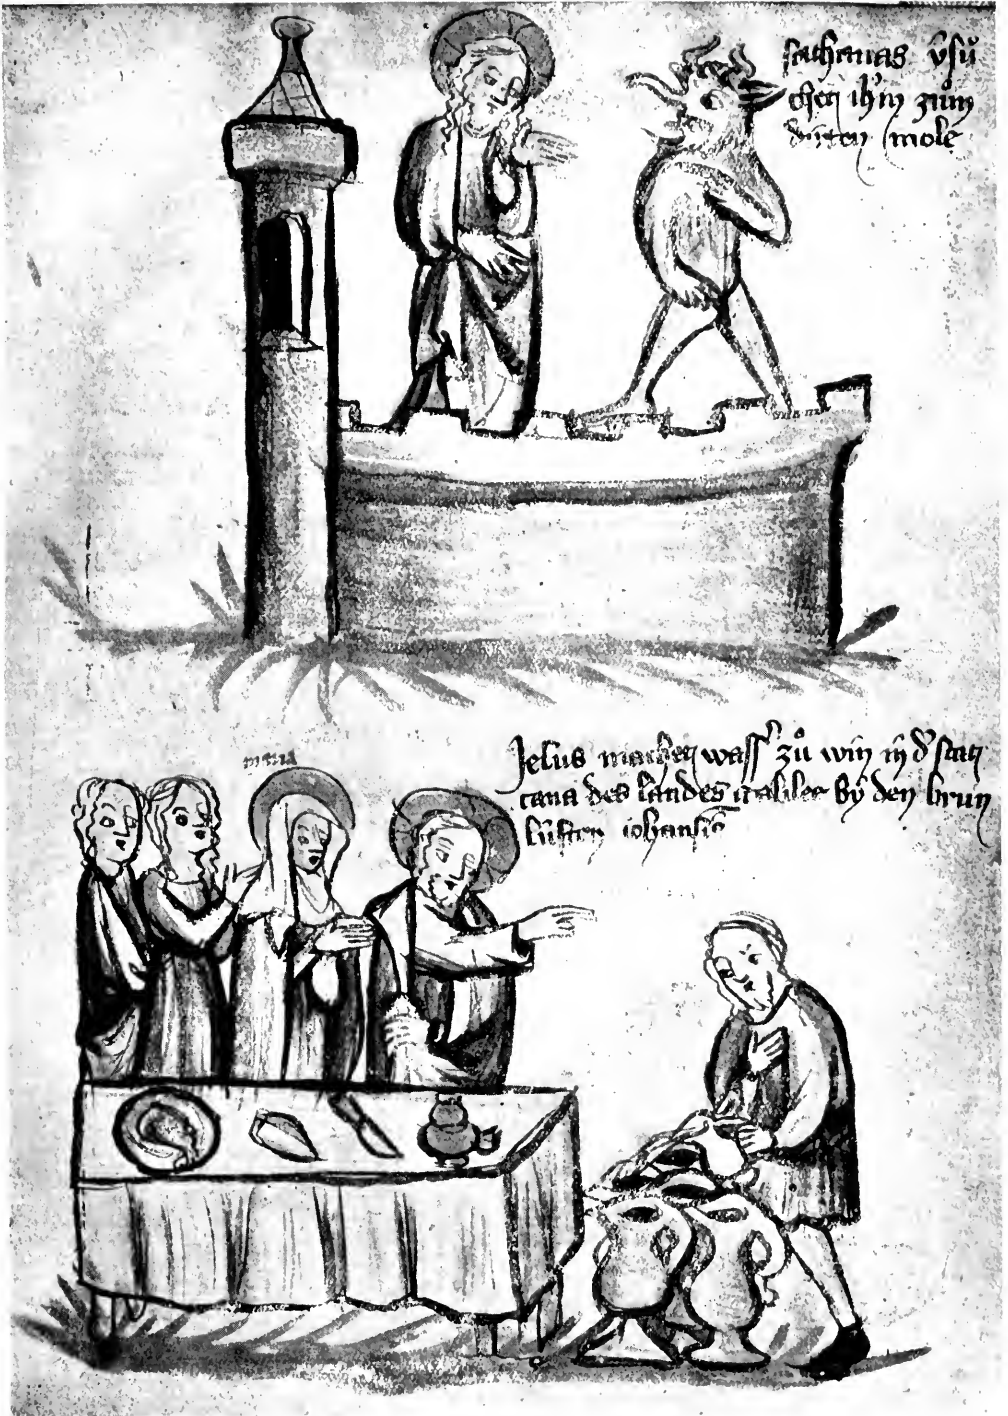 sathanas v̂sů
chet ih̄m zům
dirten mole
maria
Jesus machet wass̾ zů win in d̾ stat
cana des landes galilee by den brun
lŭften iohansis